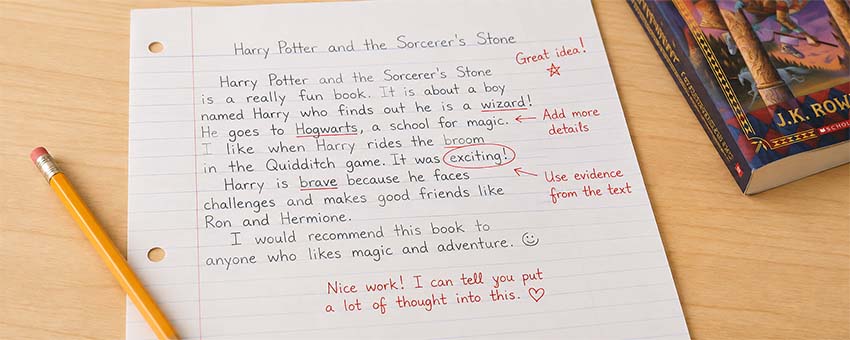 Harry Potter and the Sorcerer's Stone
Great idea!
Harry Potter and the Sorcerer's Stone
is a really fun book. It is about a boy
named Harry who finds out he is a wizard!
He goes to Hogwarts, a school for magic.
Add more
details
I like when Harry rides the broom
in the Quidditch game. It was exciting!
Harry is brave because he faces
Use evidence
from the text
challenges and makes good friends like
Ron and Hermione.
I would recommend this book to
anyone who likes magic and adventure.
Nice work! I can tell you put
a lot of thought into this.
J.K. ROW
SCHOL